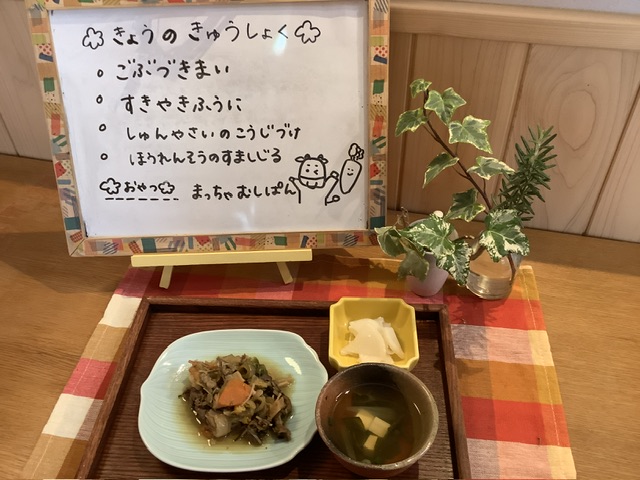 きょうの きゅうしょく
ごぶづきまい
すきやきふうに
しゅんやさいのこうじづけ
ほうれんそうのすましじる
おやつ まっちゃむしぱん